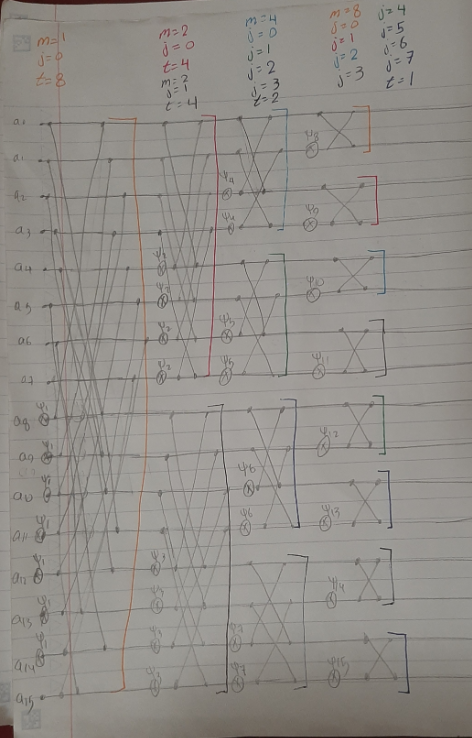 m=1
j=0
t=8
m=2
j=0
t=4
m=2
j=1
t=4
m=4
j=0
j=1
j=2
j=3
t=2
m=8
j=0
j=1
j=2
j=3
j=4
j=5
j=6
j=7
t=1
a2
a3
a4
a5
a6
a7
a8
a9
a11
a12
a13
a14
a15
ψ1
ψ1
ψ1
ψ1
ψ1
ψ2
ψ2
ψ3
ψ3
ψ4
ψ4
ψ5
ψ5
ψ6
ψ6
ψ7
ψ7
ψ8
ψ9
ψ10
ψ11
ψ12
ψ13
ψ14
ψ15